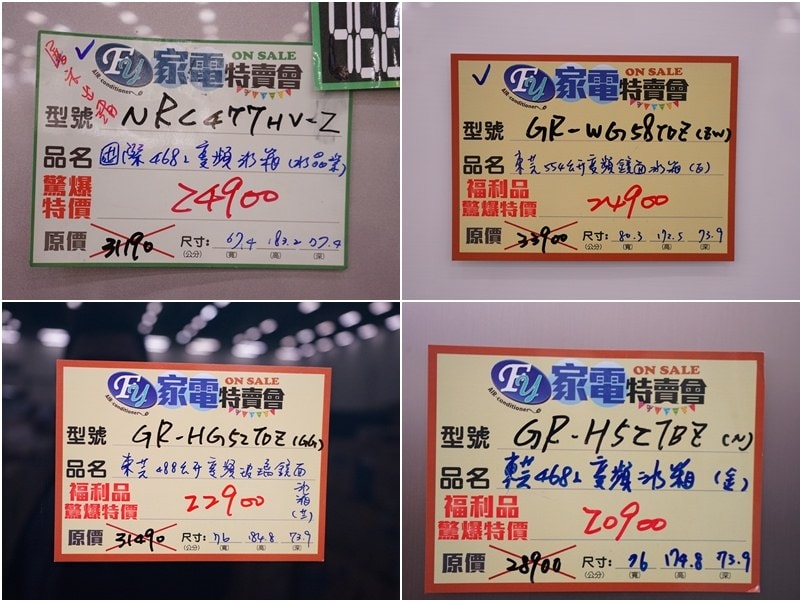 FU 家電 ON SALE
AIR conditioner 特賣會
型號 NRC477HV-Z
品名 国際468L変頻冰箱(水晶紫)
驚爆特價 24900
原價 31190 尺寸: 67.4 183.2 57.4
(公分) (寬) (高) (深)
FU 家電 ON SALE
AIR conditioner 特賣會
型號 GR-WG58TDZ(ZW)
品名 東芝554公升变頻鏡面冰箱(白)
福利品
驚爆特價 24900
原價 33900 尺寸: 80.3 172.5 73.9
(公分) (寬) (高) (深)
FU 家電 ON SALE
AIR conditioner 特賣會
型號 GR-HG52TDZ(GG)
品名 東芝488公升变頻玻璃鏡面冰箱
福利品
驚爆特價 22900
原價 31490 尺寸: 76 184.8 73.9
(公分) (寬) (高) (深)
FU 家電 ON SALE
AIR conditioner 特賣會
型號 GR-H52TBZ(N)
品名 東芝468L变頻冰箱(金)
福利品
驚爆特價 20900
原價 28900 尺寸: 76 174.8 73.9
(公分) (寬) (高) (深)